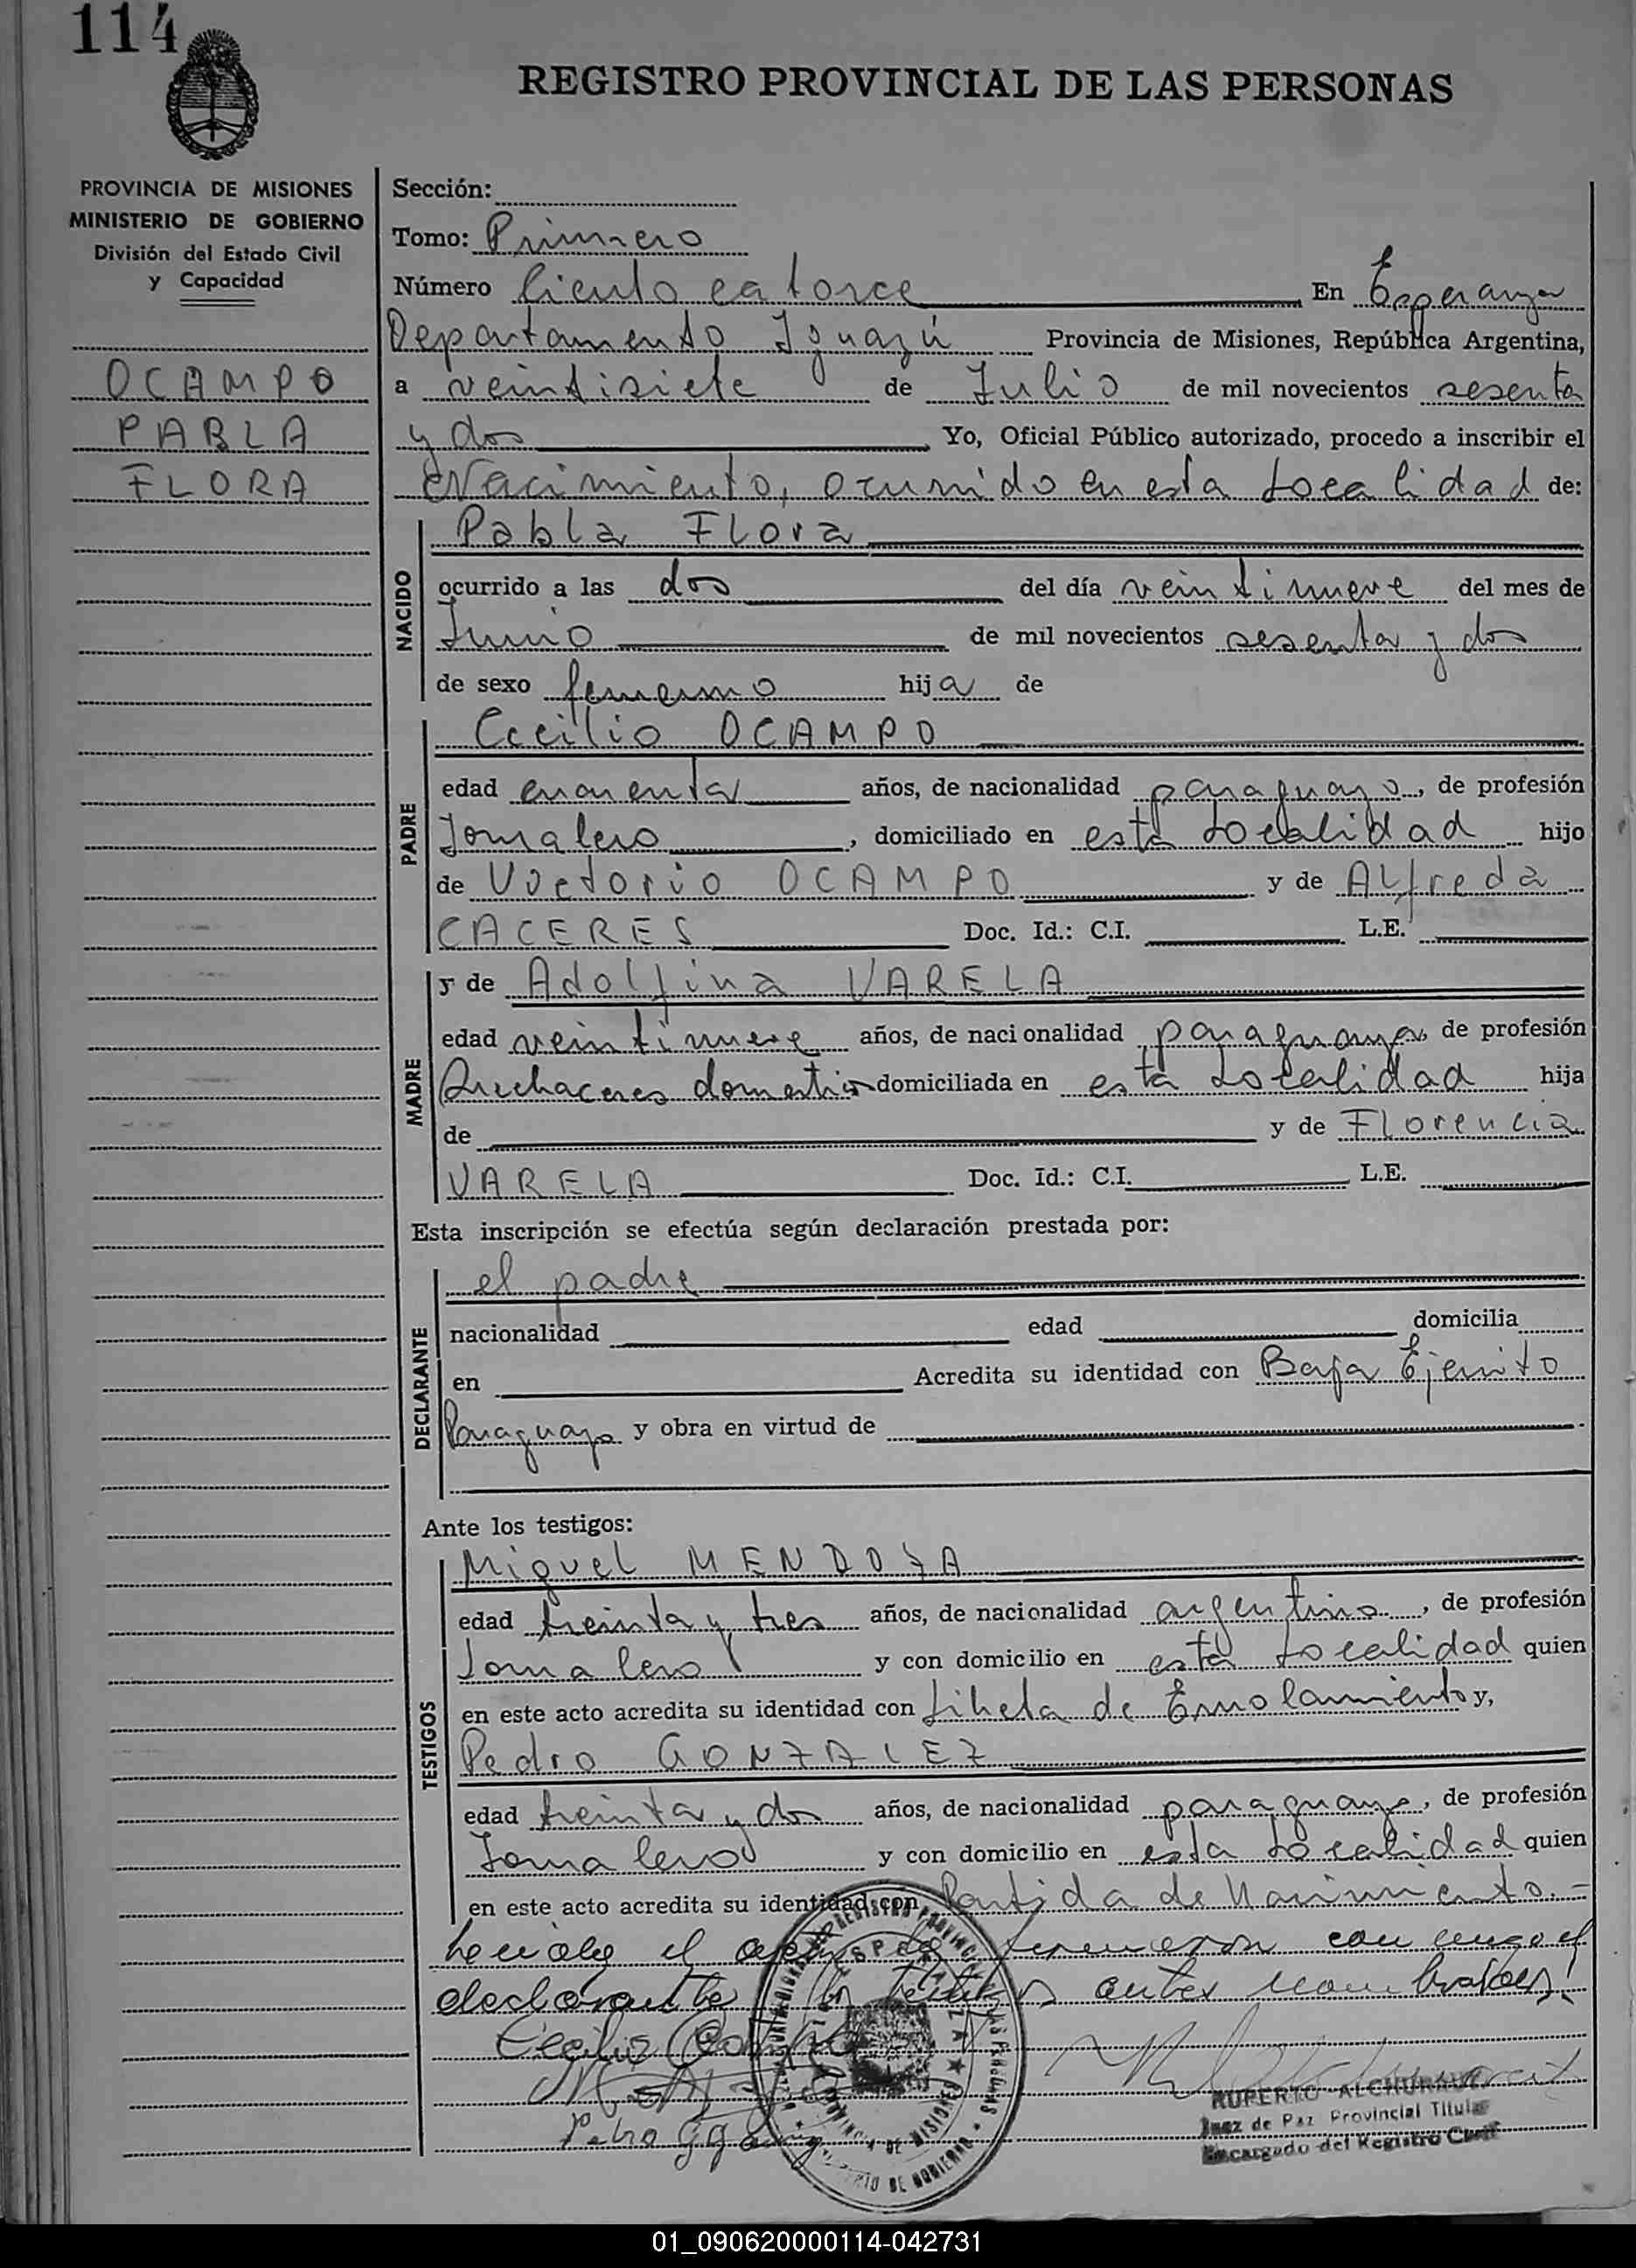 114
REGISTRO PROVINCIAL DE LAS PERSONAS
PROVINCIA DE MISIONES
MINISTERIO DE GOBIERNO
División del Estado Civil
y Capacidad
OCAMPO
PABLA
FLORA
Sección:
Tomo: Primero
Número Ciento catorce En Esperanza
Departamento Iguazú Provincia de Misiones, República Argentina,
a veintisiete de Julio de mil novecientos sesenta
y dos, Yo, Oficial Público autorizado, procedo a inscribir el
Nacimiento, ocurrido en esta Localidad de:
NACIDO
Pabla Flora
ocurrido a las dos del día veintinueve del mes de
Junio de mil novecientos sesenta y dos
de sexo femenino hija de
PADRE
Cecilio OCAMPO
edad cuarenta años, de nacionalidad paraguayo, de profesión
Jornalero, domiciliado en esta Localidad hijo
de Victorio OCAMPO y de Alfreda
CACERES Doc. Id.: C.I. L.E.
MADRE
y de Adolfina VARELA
edad veintinueve años, de nacionalidad paraguaya, de profesión
Quehaceres domestico domiciliada en esta Localidad hija
de y de Florencia
VARELA Doc. Id.: C.I. L.E.
Esta inscripción se efectúa según declaración prestada por:
DECLARANTE
el padre
nacionalidad edad domicilia
en Acredita su identidad con Baja Ejercito
Paraguayo y obra en virtud de
Ante los testigos:
TESTIGOS
Miguel MENDOZA
edad treinta y tres años, de nacionalidad argentino, de profesión
Jornalero y con domicilio en esta Localidad quien
en este acto acredita su identidad con Libreta de Enrolamiento y,
Pedro GONZALEZ
edad treinta y dos años, de nacionalidad paraguayo, de profesión
Jornalero y con domicilio en esta Localidad quien
en este acto acredita su identidad con Partida de Nacimiento.-
el firmaron conmigo el
declarante testigos antes nombrados!
Cecilio
Pedro
RUPERTO ALCHURRUT
Juez de Paz Provincial Titular
Encargado del Registro Civil
01_090620000114-042731